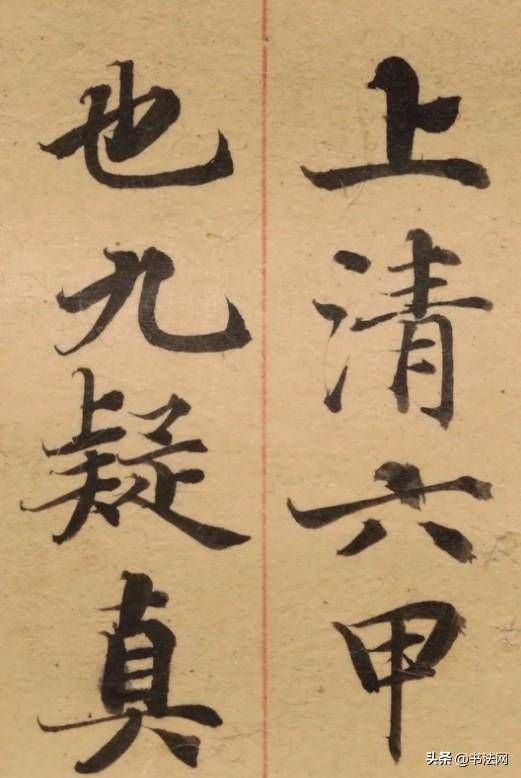 上清六甲
也九疑真
头条 @书法网